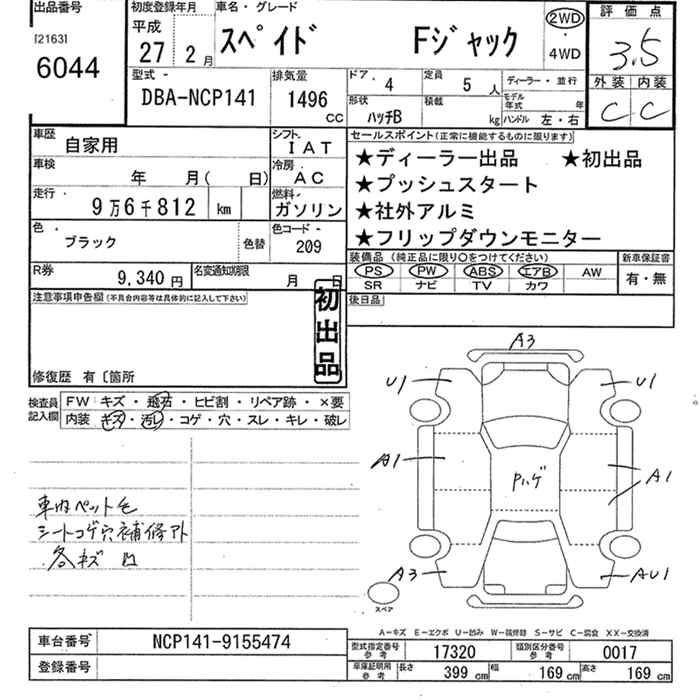 出品番号
[2163]
6044
初度登録年月
平成
27 2 月
車名・グレード
スペイド Fジャック
2WD
・
4WD
評価点
3.5
外装 内装
C C
型式
DBA-NCP141
排気量
1496 CC
ドア 4
定員 5 人
ディーラー・並行
形状 ハッチB
積載 kg
モデル年式 年
ハンドル 左・右
車歴 自家用
シフト IAT
車検 年 月( 日)
冷房 AC
走行 9万6千812 km
燃料 ガソリン
色 ブラック
色替
色コード 209
R券 9,340 円
名変通知期限 月 日
セールスポイント(正常に機能するものに限ります)
★ディーラー出品 ★初出品
★プッシュスタート
★社外アルミ
★フリップダウンモニター
装備品 (純正品に限り○をつけてください)
新車保証書
PS PW ABS エアB AW
SR ナビ TV カワ
有・無
注意事項申告欄(不具合内容等は具体的に記入して下さい)
初出品
後日品
修復歴 有〔箇所
検査員記入欄
FW キズ・飛石・ヒビ割・リペア跡・×要
内装 キズ・汚レ・コゲ・穴・スレ・キレ・破レ
車内ペット毛
シートコゲ穴補修アト
各キズ凹
A3
U1 U1
A1 A1
A3 AU1
スペア
A-キズ E-エクボ U-凹み W-板修跡 S-サビ C-腐食 XX-交換済
車台番号 NCP141-9155474
登録番号
型式指定番号参考 17320
類別区分番号参考 0017
車庫証明用参考 長さ 399 cm 幅 169 cm 高さ 169 cm